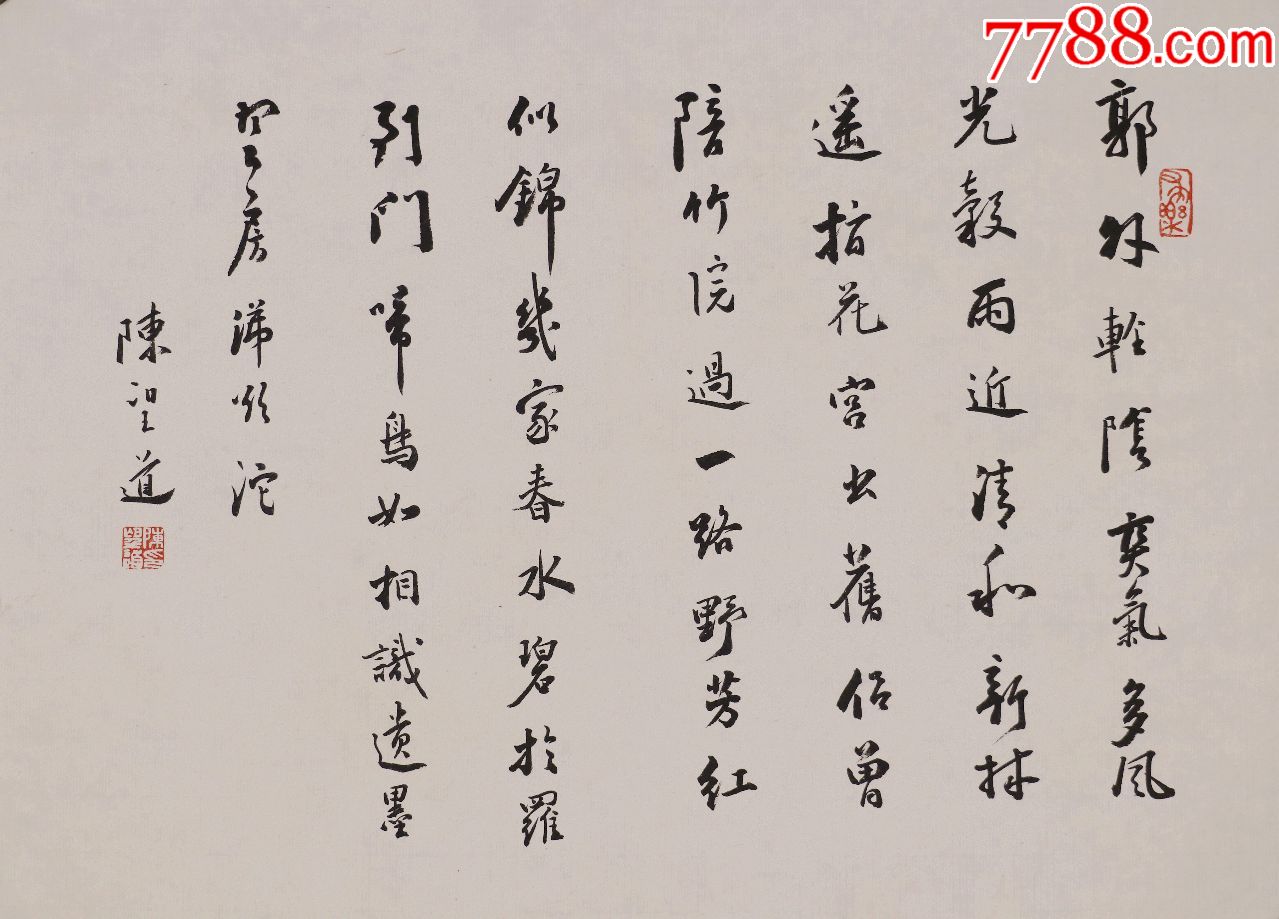 7788.com
郭外輕陰爽氣多風
光穀雨近清和新林
遥指花宫出舊侣曾
陪竹院過一路野芳紅
似錦幾家春水碧於羅
到門啼鳥如相識遺墨
房涕沱
陳望道